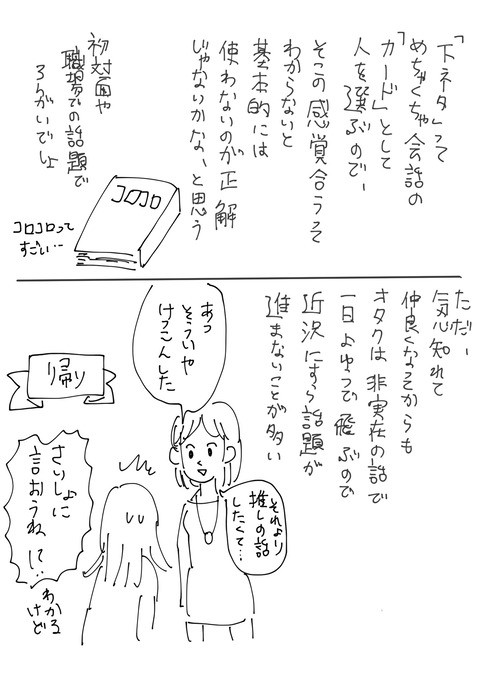 「下ネタ」って
めちゃくちゃ会話の
「カード」として
人を選ぶので〜
そこの感覚合うって
わからないと
基本的には
使わないのが正解
じゃないかな、と思う
初対面や
職場での話題で
ろんがいでしょ
コロコロ
コロコロって
すごい…
ただ〜
気心知れて
仲良くなってからも
オタクは非実在の話で
一日よゆうで飛ぶので
近況にすら話題が
進まないことが多い
あっ
そういや
けっこんした
それより
推しの話
したくて…
帰り
さいしょに
言おうねに…
わかる
けど